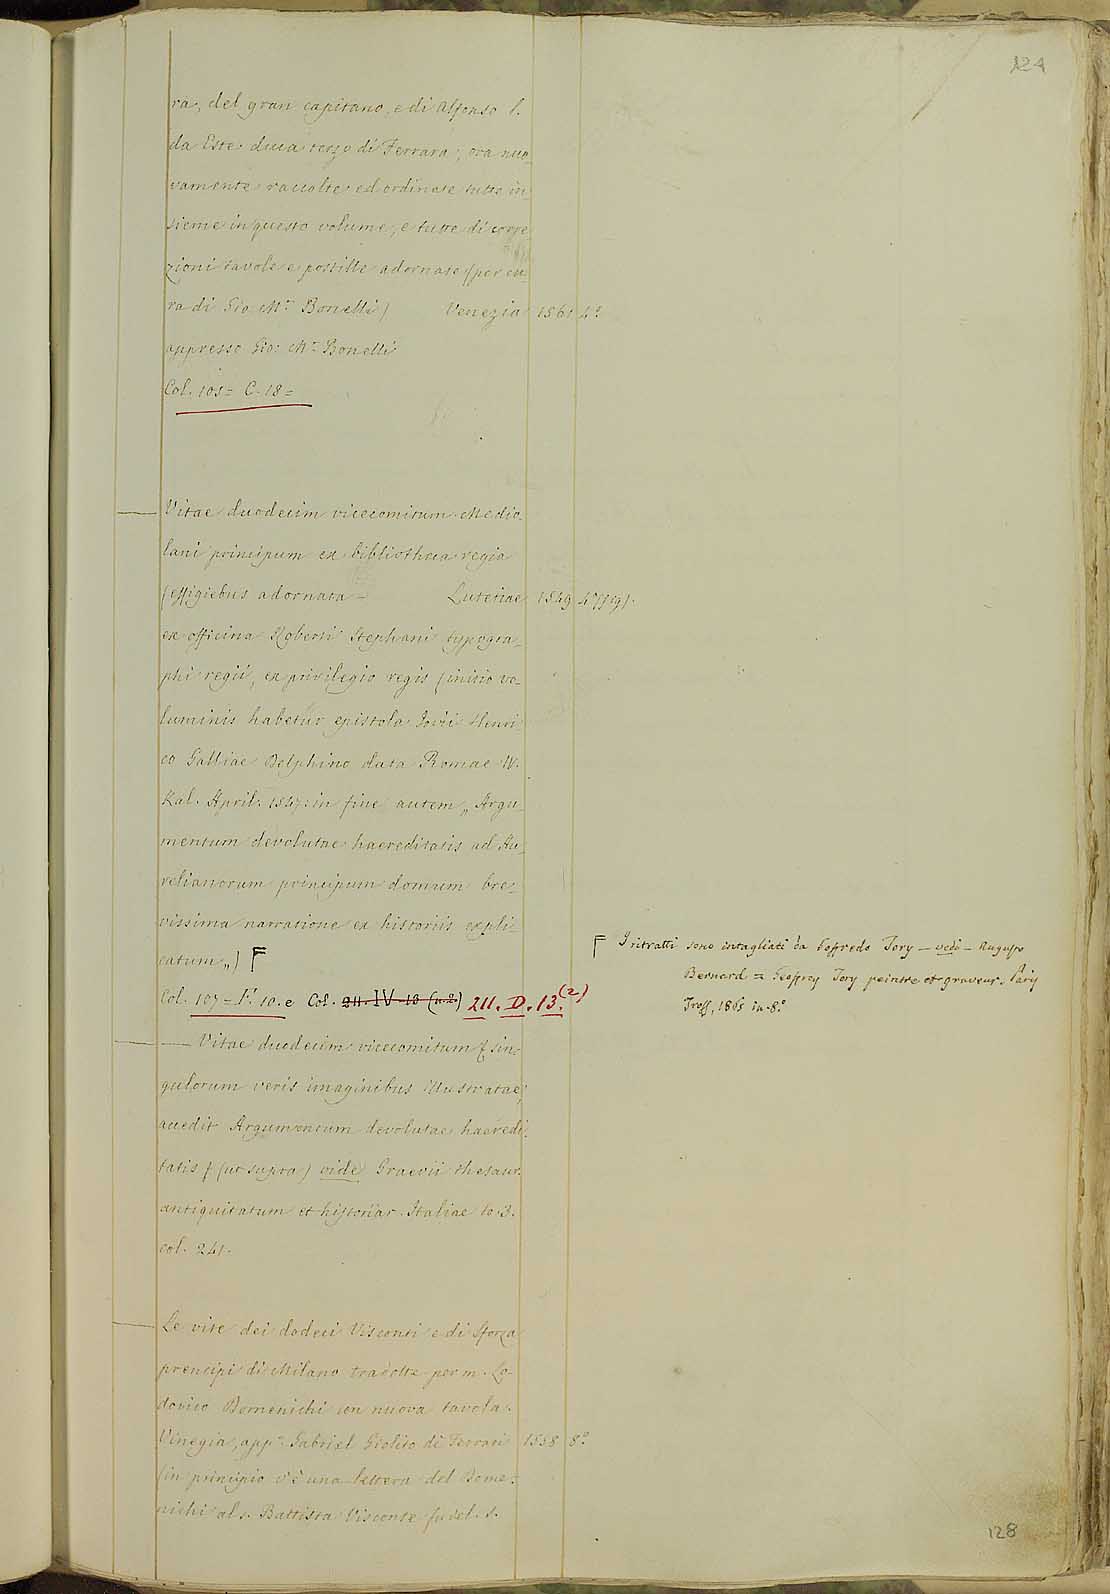 124
ra, del gran capitano, e di Alfonso I.
da Este duca terzo di Ferrara; ora nuo-
vamente raccolte ed ordinate tutte in-
sieme in questo volume, e tutte di corre-
zioni tavole e postille adornate (per cu-
ra di Gio: M.ª Bonelli) Venezia 1561 4.º
appresso Gio: M.ª Bonelli
Col. 105 = C. 18 =
Vitae duodecim vicecomitum Medio-
lani principum ex bibliotheca regia
(effigiebus adornata - Lutetiae 1549 4.º (fig).
ex officina Roberti Stephani typogra-
phi regii, ex privilegio regis (initio vo-
luminis habetur epistola Jovii Henri-
co Galliae Delphino data Romae IV.
Kal. April. 1547: in fine autem „ Argu-
mentum devolutae haereditatis ad Au-
relianorum principum domum bre-
vissima narratione ex historiis expli-
catum „)
I ritratti sono intagliati da Goffredo Tory — vedi — Augusto
Bernard = Geoffroy Tory peintre et graveur. Paris
Tross, 1865 in-8.º
Col. 107 = F. 10. e Col. 211. IV 13 (n. 2.) 211. D. 13. (2)
— Vitae duodecim vicecomitum ( sin-
gulorum veris imaginibus illustratae;
accedit Argumentum devolutae haeredi-
tatis ( (ut supra) vide Graevii thesaur.
antiquitatum et historiar. Italiae to. 3.
col. 241.
Le vite dei dodeci Visconti e di Sforza
prencipi di Milano tradotte per m. Lo-
dovico Domenichi con nuova tavola.
Vinegia, app.º Gabriel Giolito di Ferrari 1558 8.º
(in principio v'è una lettera del Dome-
nichi al s. Battista Visconte fu del s.
128